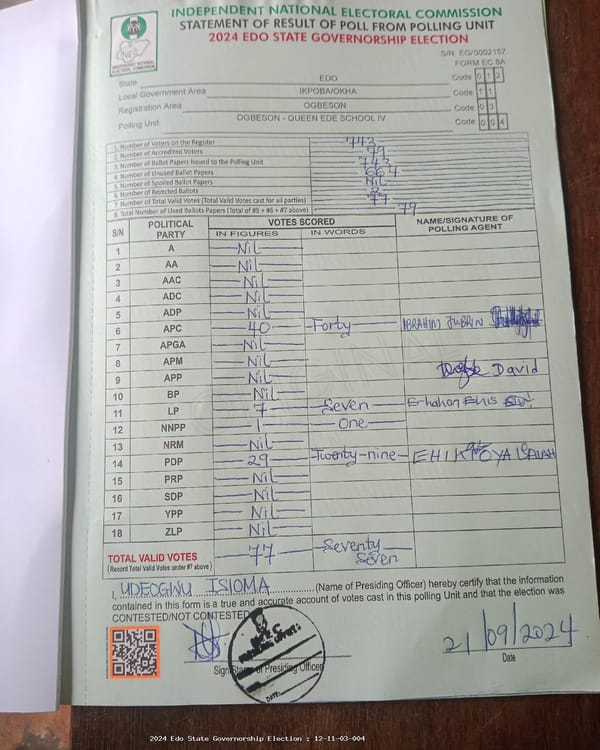 INDEPENDENT NATIONAL ELECTORAL COMMISSION
STATEMENT OF RESULT OF POLL FROM POLLING UNIT
2024 EDO STATE GOVERNORSHIP ELECTION
S/N: EG/0002157
FORM EC 8A
State EDO Code 012
Local Government Area IKPOBA/OKHA Code 11
Registration Area OGBESON Code 03
Polling Unit OGBESON - QUEEN EDE SCHOOL IV Code 004
1. Number of Voters on the Register 743
2. Number of Accredited Voters 79
3. Number of Ballot Papers Issued to the Polling Unit 743
4. Number of Unused Ballot Papers 664
5. Number of Spoiled Ballot Papers Nil
6. Number of Rejected Ballots 2
7. Number of Total Valid Votes (Total Valid Votes cast for all parties) 77
8. Total Number of Used Ballots Papers (Total of #5 + #6 + #7 above) 79
S/N POLITICAL PARTY VOTES SCORED NAME/SIGNATURE OF POLLING AGENT
IN FIGURES IN WORDS
1 A Nil
2 AA Nil
3 AAC Nil
4 ADC Nil
5 ADP Nil
6 APC 40 Forty IBRAHIM JUBRIN
7 APGA Nil
8 APM Nil
9 APP Nil David
10 BP Nil
11 LP 7 Seven
12 NNPP 1 One
13 NRM Nil
14 PDP 29 Twenty-nine
15 PRP Nil
16 SDP Nil
17 YPP Nil
18 ZLP Nil
TOTAL VALID VOTES 77 Seventy Seven
(Record Total Valid Votes under #7 above)
I, UDEOGWU ISIOMA (Name of Presiding Officer) hereby certify that the information
contained in this form is a true and accurate account of votes cast in this polling Unit and that the election was
CONTESTED/NOT CONTESTED
21/09/2024
Presiding Officer
Date
DATE:
2024 Edo State Governorship Election : 12-11-03-004